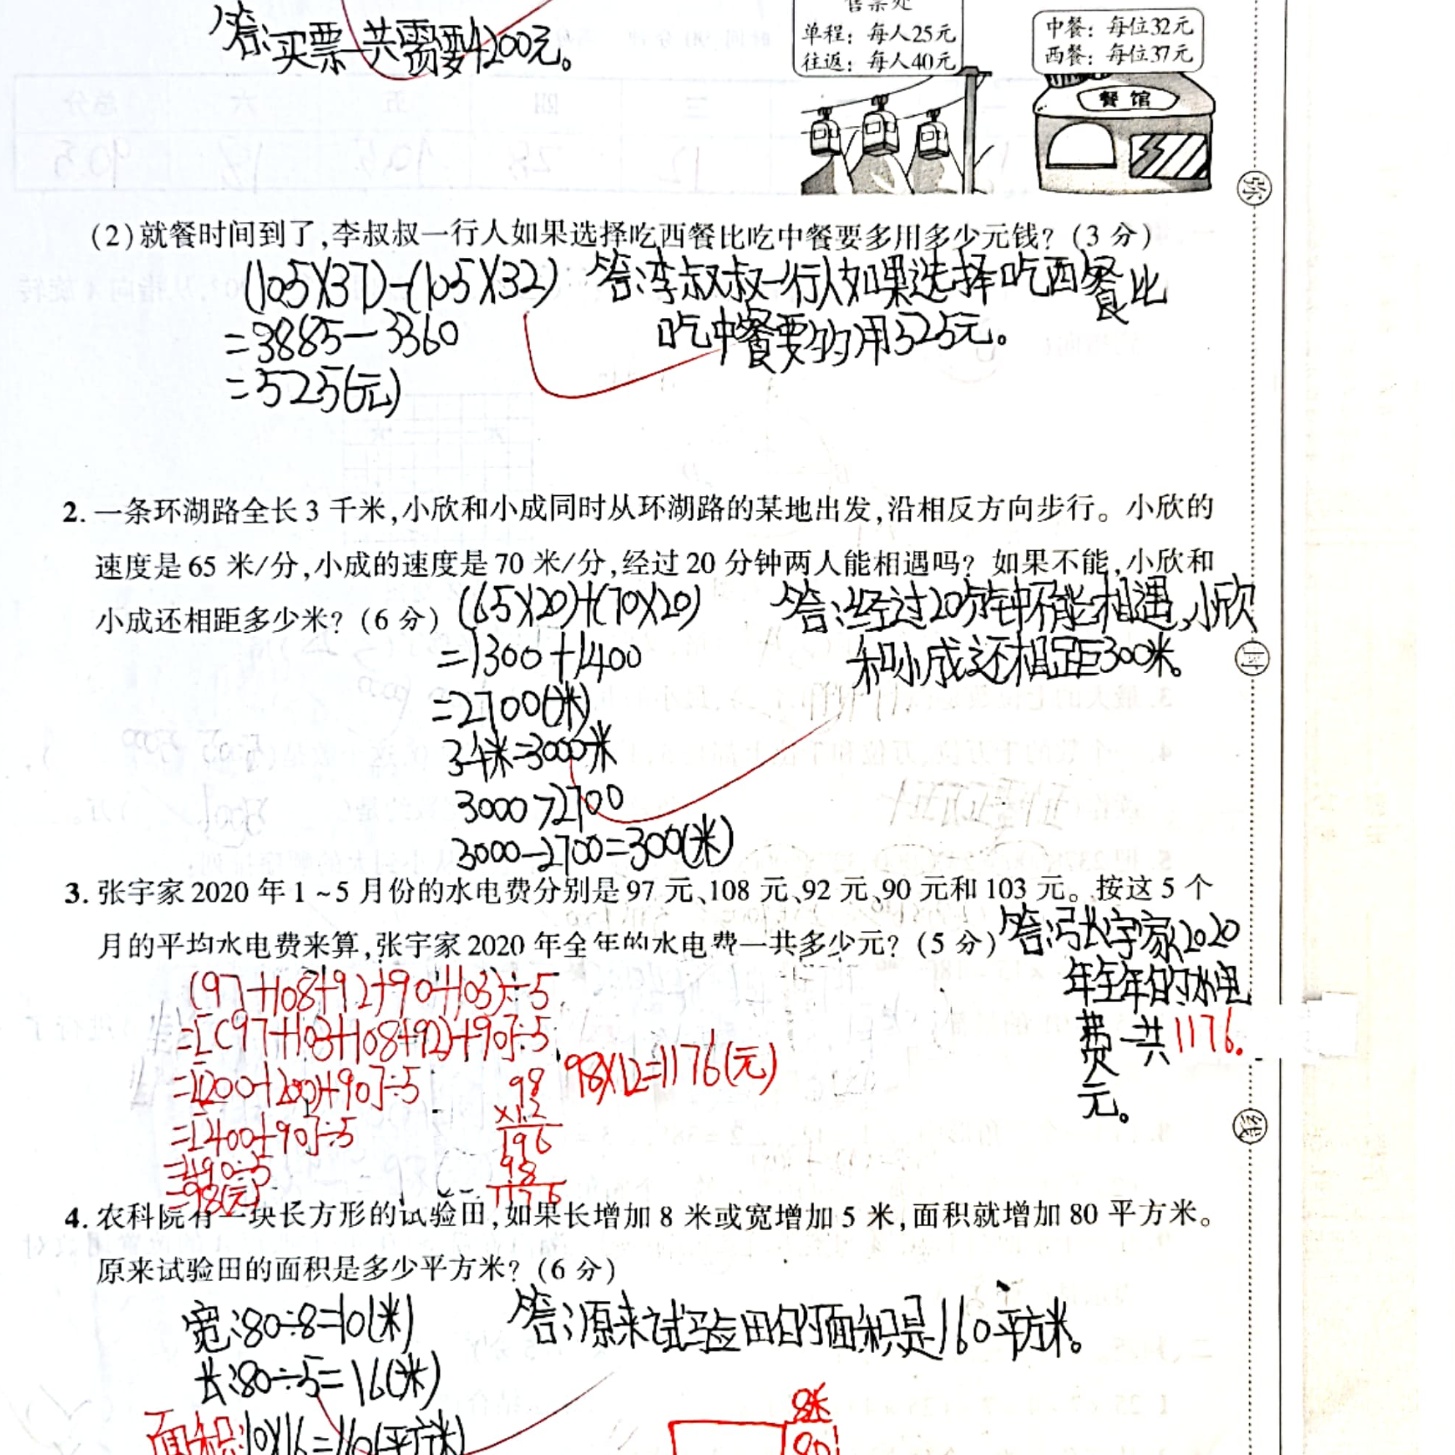 答:买票一共需要4200元。
售票处
单程：每人25元
往返：每人40元
中餐：每位32元
西餐：每位37元
餐馆
(2)就餐时间到了,李叔叔一行人如果选择吃西餐比吃中餐要多用多少元钱？(3分)
(105X37)-(105X32)
=3885-3360
=525(元)
答:李叔叔一行人如果选择吃西餐比
吃中餐要多用525元。
2. 一条环湖路全长3千米,小欣和小成同时从环湖路的某地出发,沿相反方向步行。小欣的
速度是65米/分,小成的速度是70米/分,经过20分钟两人能相遇吗？如果不能,小欣和
小成还相距多少米？(6分)
(65X20)+(70X20)
=1300+1400
=2700(米)
3千米=3000米
3000>2700
3000-2700=300(米)
答:经过20分钟不能相遇,小欣
和小成还相距300米。
3. 张宇家2020年1~5月份的水电费分别是97元、108元、92元、90元和103元。按这5个
月的平均水电费来算,张宇家2020年全年的水电费一共多少元？(5分)
(97+108+92+90+103)÷5
=[(97+103+108+92)+90]÷5
=[200+200)+90]÷5
=[400+90]÷5
=490÷5
=98(元)
98X12=1176(元)
98
×12
196
98
1176
答:张宇家2020
年全年的水电
费一共1176.
元。
弥
封
线
4. 农科院有一块长方形的试验田,如果长增加8米或宽增加5米,面积就增加80平方米。
原来试验田的面积是多少平方米？(6分)
宽:80÷8=10(米)
长:80÷5=16(米)
面积:10X16=160(平方米)
答:原来试验田的面积是160平方米。
8米
80